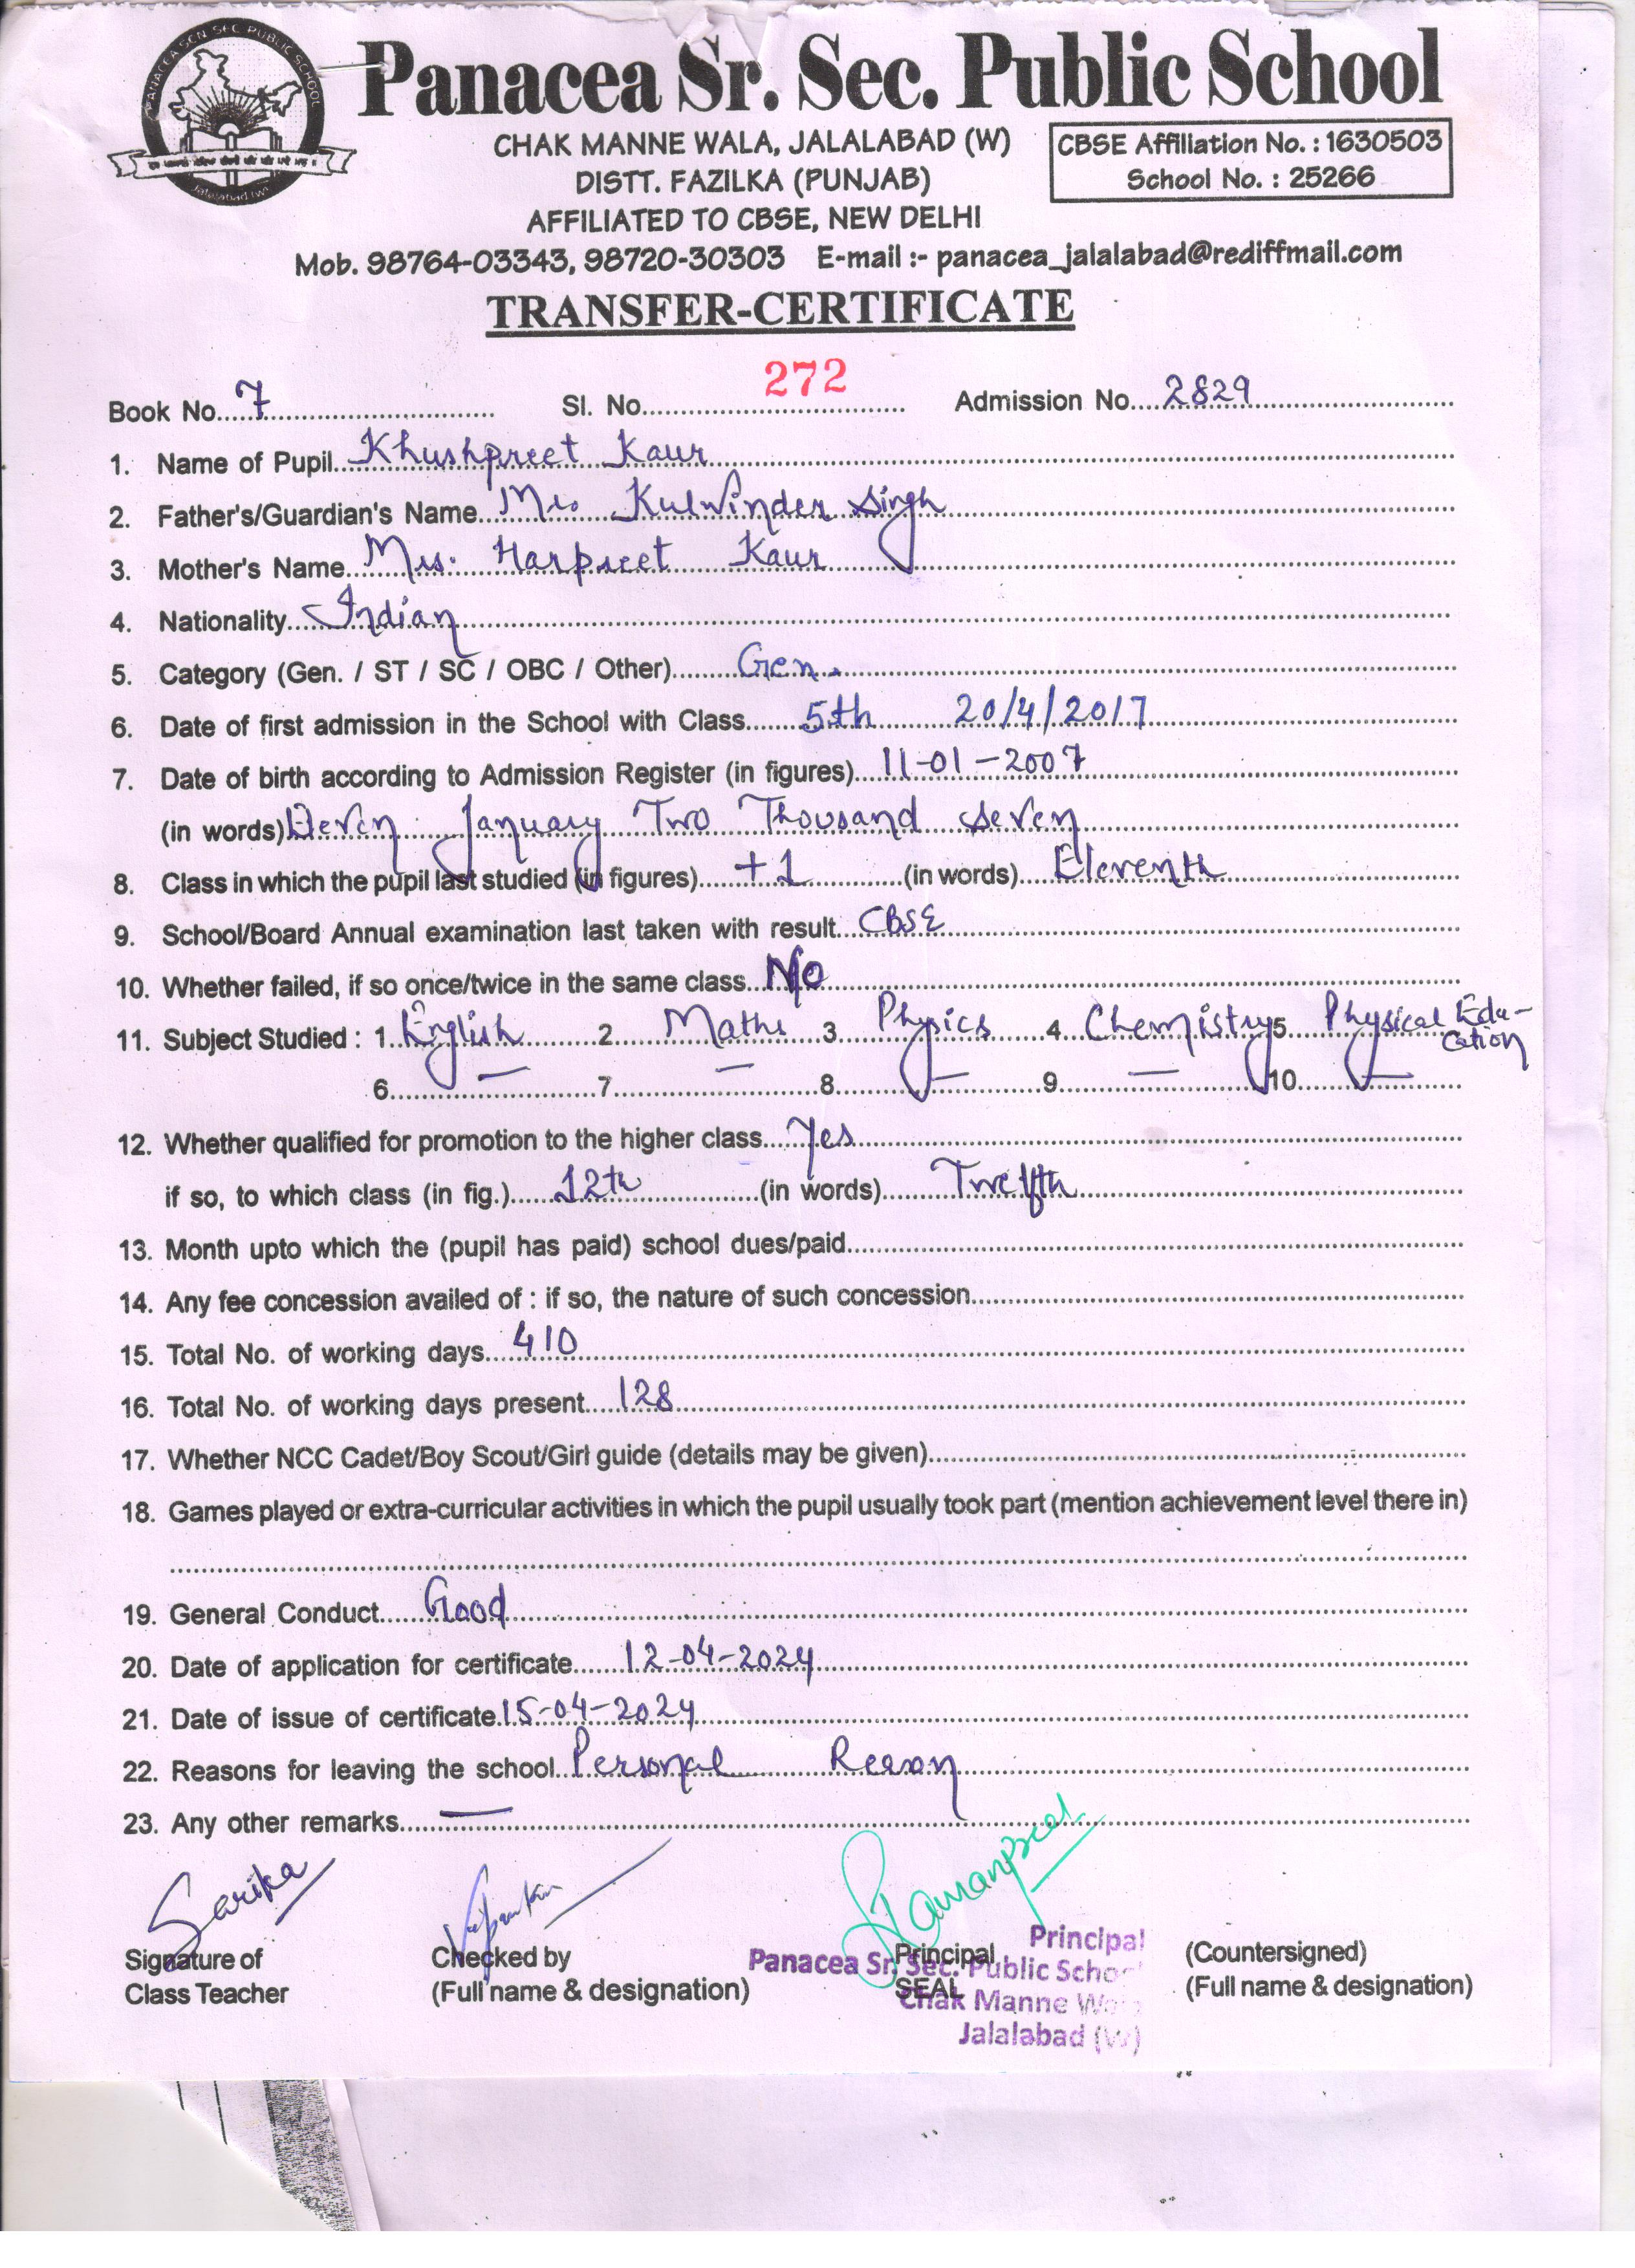 PANACEA SEN SEC PUBLIC SCHOOL
Jalalabad (W)
Panacea Sr. Sec. Public School
CHAK MANNE WALA, JALALABAD (W)
DISTT. FAZILKA (PUNJAB)
AFFILIATED TO CBSE, NEW DELHI
CBSE Affiliation No. : 1630503
School No. : 25266
Mob. 98764-03343, 98720-30303 E-mail :- panacea_jalalabad@rediffmail.com
TRANSFER-CERTIFICATE
Book No. 7 Sl. No. 272 Admission No. 2829
1. Name of Pupil Khushpreet Kaur
2. Father's/Guardian's Name Mr. Kulwinder Singh
3. Mother's Name Mrs. Harpreet Kaur
4. Nationality Indian
5. Category (Gen. / ST / SC / OBC / Other) Gen.
6. Date of first admission in the School with Class 5th 20/4/2017
7. Date of birth according to Admission Register (in figures) 11-01-2007
(in words) Eleven January Two Thousand Seven
8. Class in which the pupil last studied (in figures) +1 (in words) Eleventh
9. School/Board Annual examination last taken with result CBSE
10. Whether failed, if so once/twice in the same class No
11. Subject Studied : 1 English 2 Maths 3 Physics 4 Chemistry 5. Physical Edu-
cation
6 — 7 — 8 — 9 — 10 —
12. Whether qualified for promotion to the higher class Yes
if so, to which class (in fig.) 12th (in words) Twelfth
13. Month upto which the (pupil has paid) school dues/paid
14. Any fee concession availed of : if so, the nature of such concession
15. Total No. of working days 410
16. Total No. of working days present 128
17. Whether NCC Cadet/Boy Scout/Girl guide (details may be given)
18. Games played or extra-curricular activities in which the pupil usually took part (mention achievement level there in)
19. General Conduct Good
20. Date of application for certificate 12-04-2024
21. Date of issue of certificate 15-04-2024
22. Reasons for leaving the school Personal Reason
23. Any other remarks —
Sarika
Ramanpreet
Signature of
Class Teacher
Checked by
(Full name & designation)
Principal
SEAL
Principal
Panacea Sr. Sec. Public School
Chak Manne Wala
Jalalabad (W)
(Countersigned)
(Full name & designation)